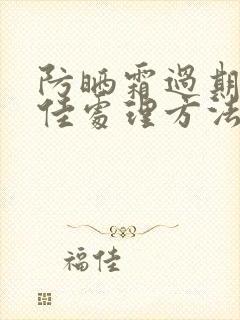 防晒霜過期
佳處理方法
福佳